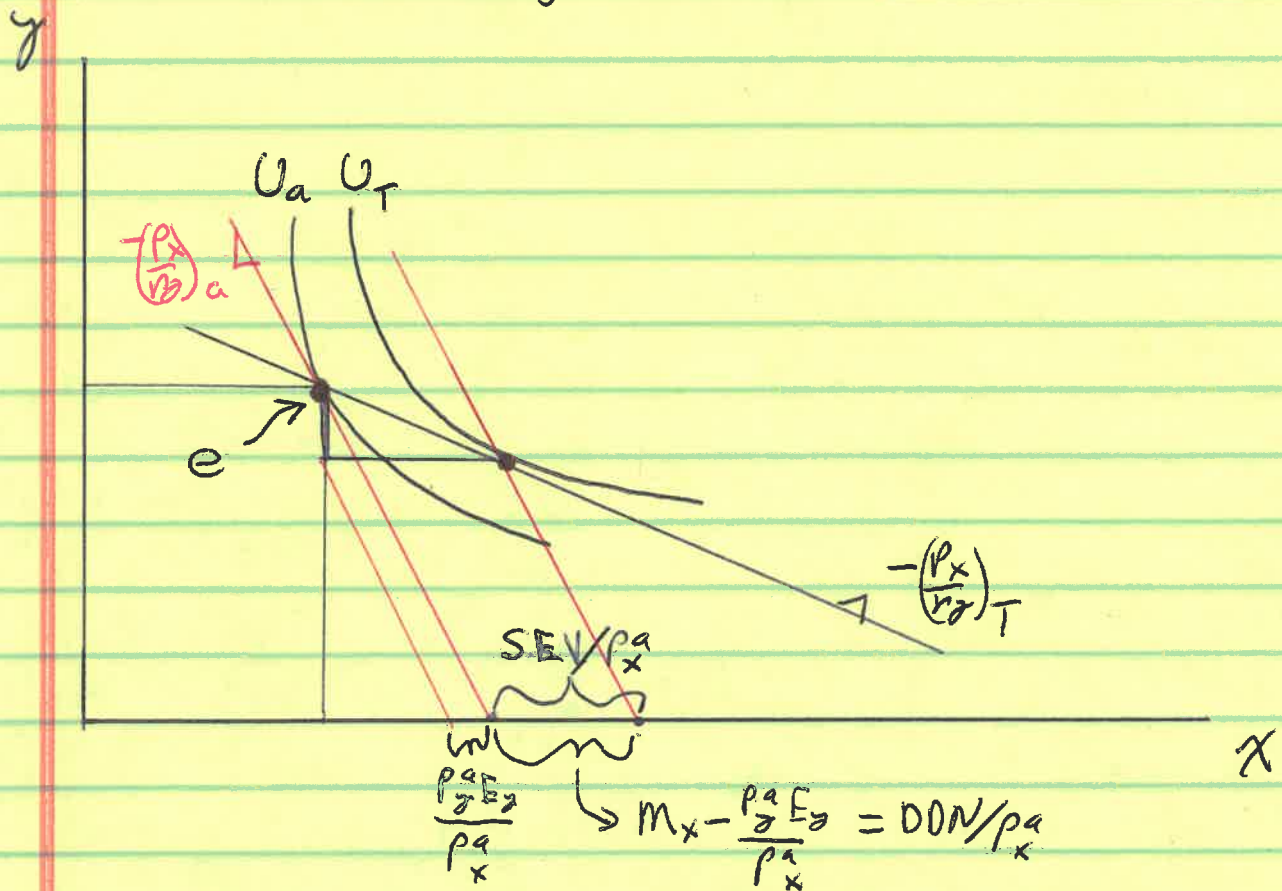 y
U_a U_T
-(P_x/P_y)_a
e
-(P_x/P_y)_T
SEV/P_x^a
x
P_y^a E_y / P_x^a
→ m_x - P_y^a E_y / P_x^a = DDN/P_x^a